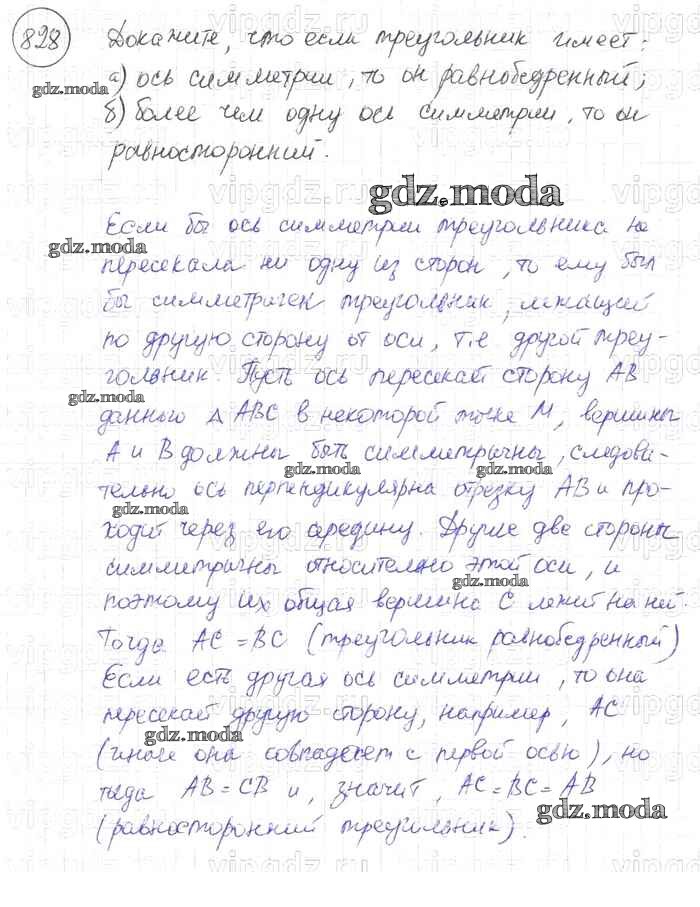 828
Докажите, что если треугольник имеет:
а) ось симметрии, то он равнобедренный;
б) более чем одну ось симметрии, то он
равносторонний.
gdz.moda
Если бы ось симметрии треугольника не
пересекала ни одну из сторон, то ему был
бы симметричен треугольник, лежащий
по другую сторону от оси, т.е другой треу-
гольник. Пусть ось пересекает сторону AB
данного △ ABC в некоторой точке M, вершины
A и B должны быть симметричны, следова-
тельно ось перпендикулярна отрезку AB и про-
ходит через его середину. Другие две стороны
симметричны относительно этой оси, и
поэтому их общая вершина C лежит на ней.
Тогда AC = BC (треугольник равнобедренный)
Если есть другая ось симметрии, то она
пересекает другую сторону, например, AC
(иначе она совпадает с первой осью), но
тогда AB = CB и, значит, AC = BC = AB
(равносторонний треугольник).
gdz.moda